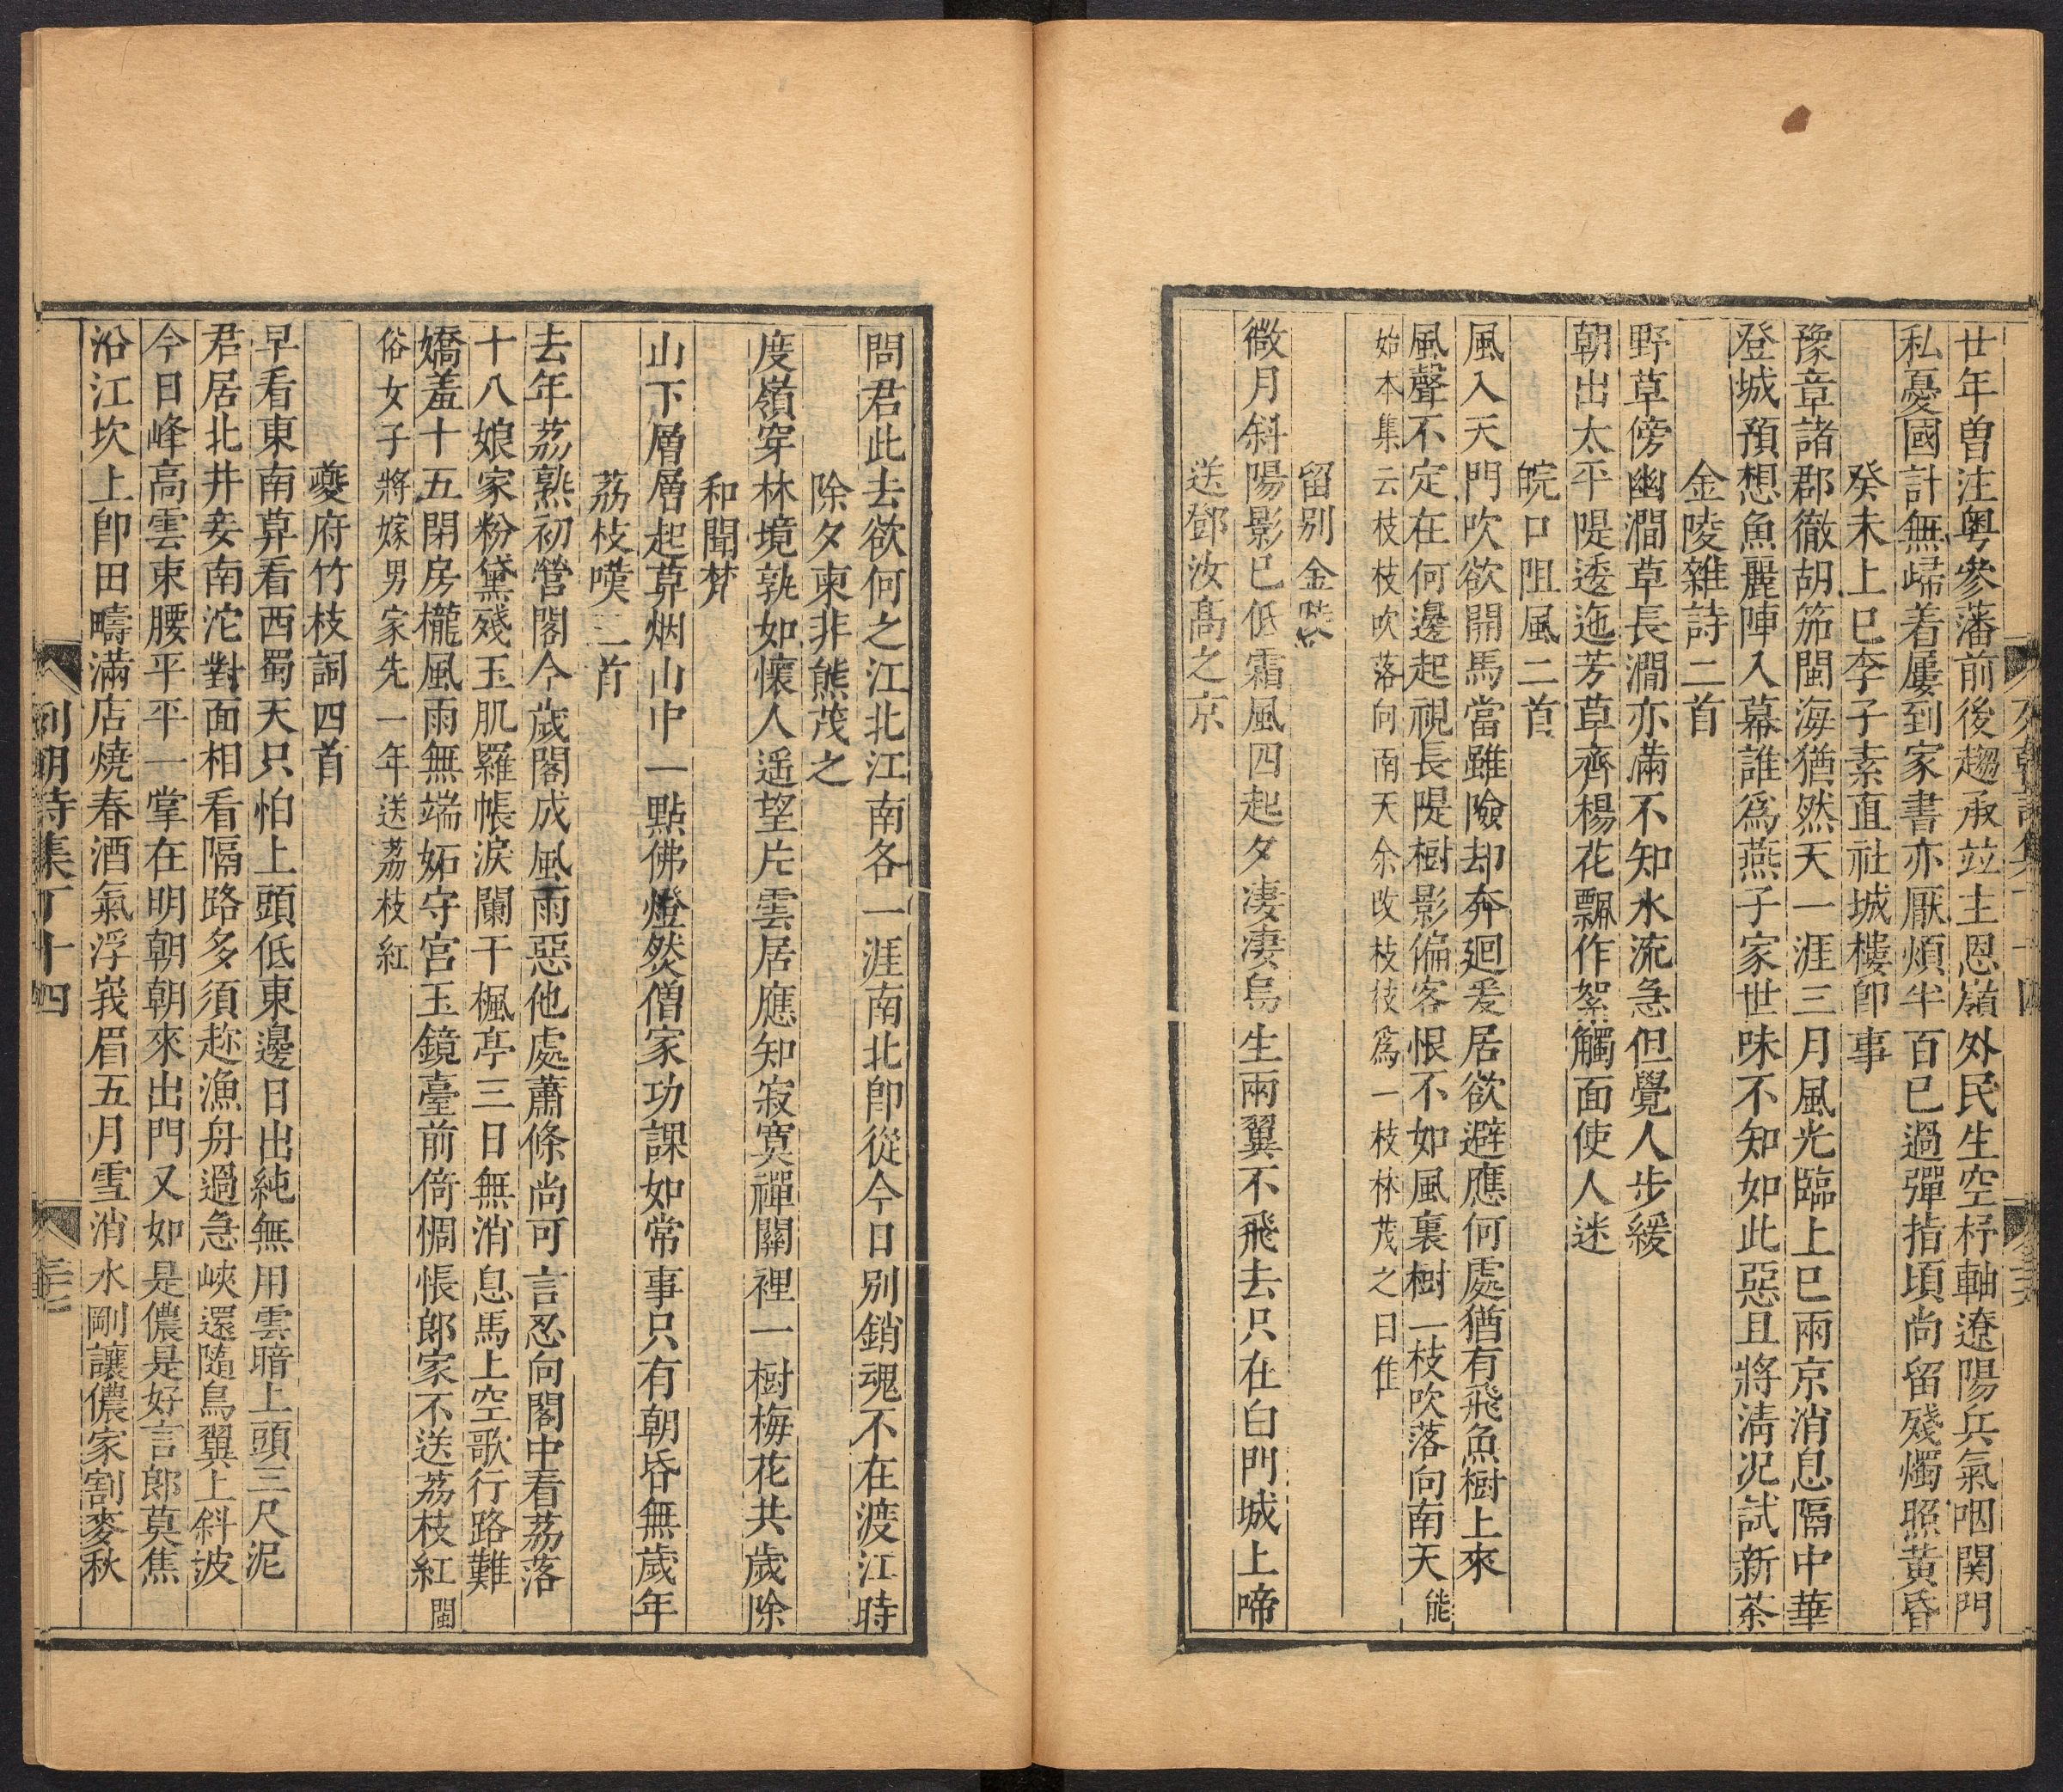 廿年曾注粵參藩前後趨承竝主恩嶺外民生空杼軸遼陽兵氣咽関門
私憂國計無歸着屢到家書亦厭煩半百已過彈指頃尚留殘燭照黃昏
癸未上巳李子素直社城樓卽事
豫章諸郡徹胡笳閩海猶然天一涯三月風光臨上巳兩京消息隔中華
登城預想魚麗陣入幕誰爲燕子家世味不知如此惡且將淸况試新茶
金陵雜詩二首
野草傍幽澗草長澗亦滿不知水流急但覺人步緩
朝出太平隄逶迤芳草齊楊花飄作絮觸面使人迷
皖口阻風二首
風入天門吹欲開馬當雖險却奔廻爰居欲避應何處猶有飛魚樹上來
風聲不定在何邊起視長隄樹影偏客恨不如風裏樹一枝吹落向南天能
始本集云枝枝吹落向南天余改枝枝爲一枝林茂之曰隹
留別金陵
微月斜陽影已低霜風四起夕淒淒烏生兩翼不飛去只在白門城上啼
送鄧汝高之京
列朝詩集丁十四
三十六
問君此去欲何之江北江南各一涯南北卽從今日別銷魂不在渡江時
除夕柬非熊茂之
度嶺穿林境孰如懷人遥望片雲居應知寂寞禪關裡一樹梅花共歲除
和聞梵
山下層層起莫烟山中一點佛燈然僧家功課如常事只有朝昏無歲年
荔枝嘆二首
去年荔熟初營閣今歲閣成風雨惡他處蕭條尚可言忍向閣中看荔落
十八娘家粉黛殘玉肌羅帳淚闌干楓亭三日無消息馬上空歌行路難
嬌羞十五閉房櫳風雨無端妬守宮玉鏡臺前倚惆悵郎家不送荔枝紅閩
俗女子將嫁男家先一年送荔枝紅
夔府竹枝詞四首
早看東南莫看西蜀天只怕上頭低東邊日出純無用雲暗上頭三尺泥
君居北井妾南沱對面相看隔路多須趂漁舟過急峽還隨鳥翼上斜波
今日峰高雲束腰平平一掌在明朝朝來出門又如是儂是好言郎莫焦
沿江坎上卽田疇滿店燒春酒氣浮峩眉五月雪消水剛讓儂家割麥秋
列朝詩集丁十四
三十七